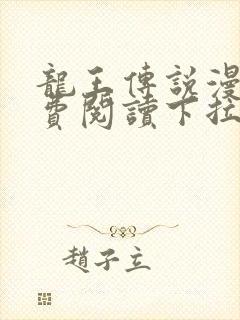 龍王傳説漫
費閱讀下拉
趙子立